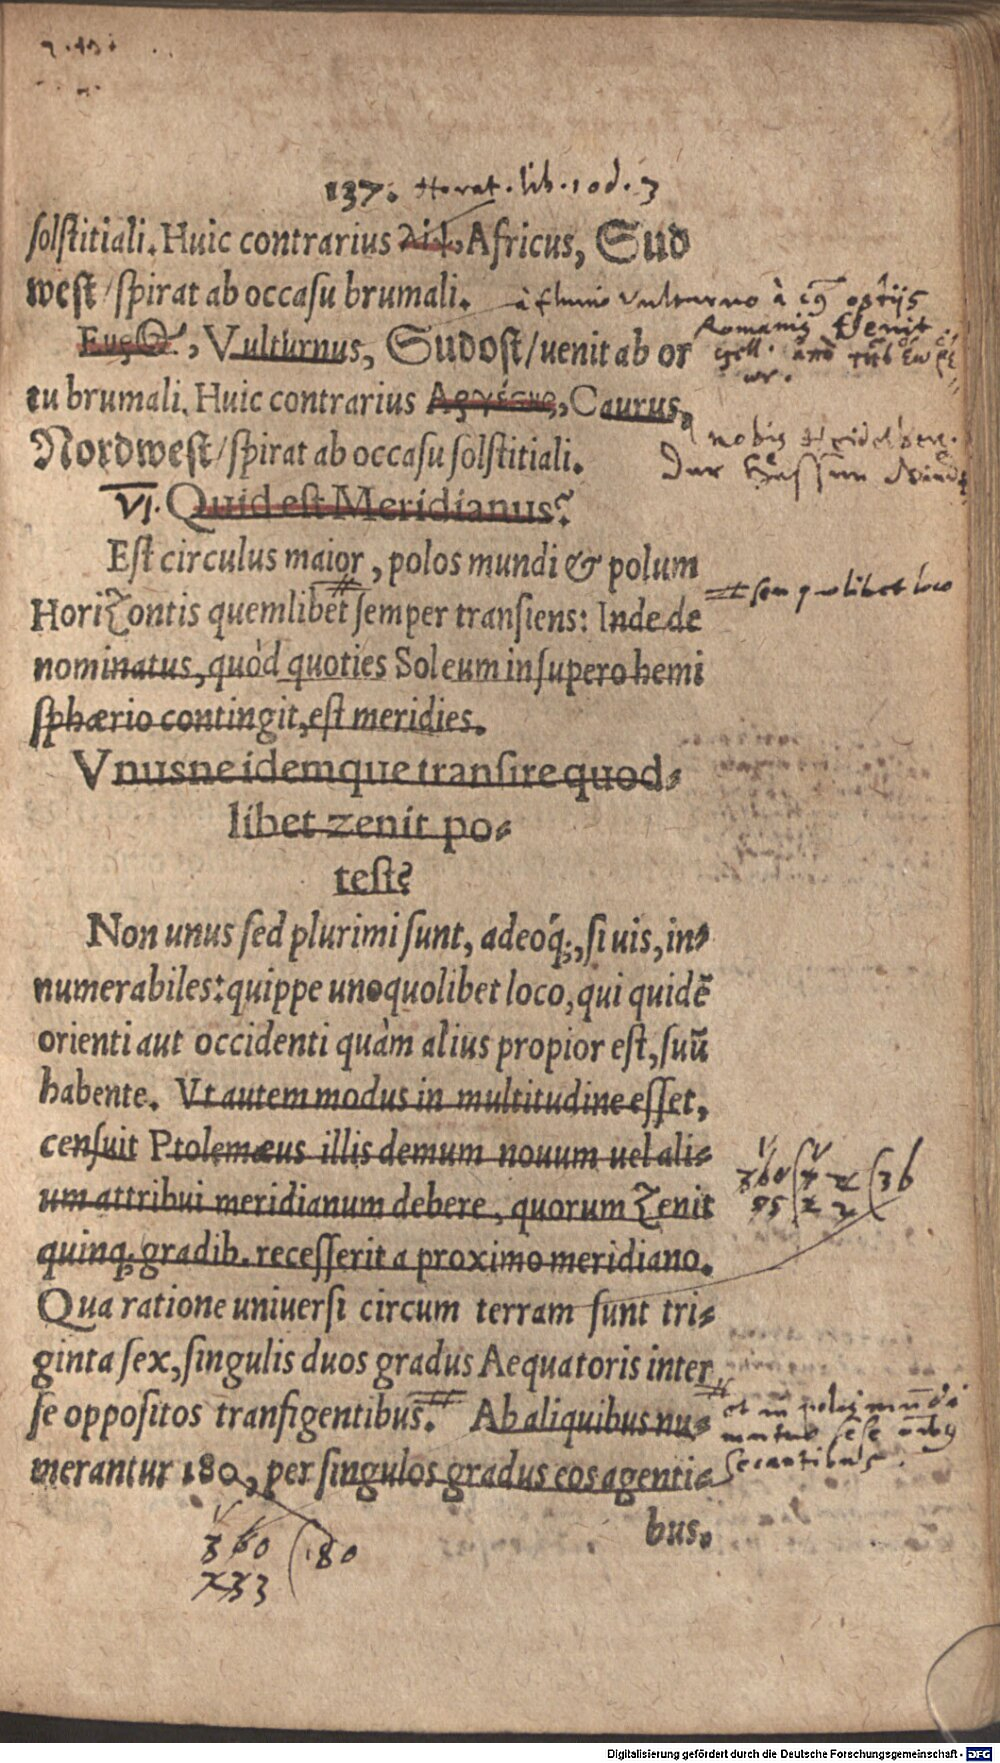 137. Horat. lib. 1 od. 3
solstitiali. Huic contrarius Λίψ, Africus, Sud
west/spirat ab occasu brumali.
à fluuio Vulturno à
Romanis Venit
Εὖρ@, Vulturnus, Sudost/uenit ab or
tu brumali. Huic contrarius Ἀργέστης, Caurus,
nobis Heidelberg.
Nordwest/spirat ab occasu solstitiali.
Der Hessen Wind
VI. Quid est Meridianus?
Est circulus maior, polos mundi & polum
Horizontis quemlibet semper transiens: Inde de
seu quolibet loco
nominatus, quòd quoties Sol eum in supero hemi
sphærio contingit, est meridies.
Vnusne idemque transire quod-
libet zenit po-
test?
Non unus sed plurimi sunt, adeoq́;, si uis, in-
numerabiles: quippe unoquolibet loco, qui quidē
orienti aut occidenti quàm alius propior est, suū
habente. Vt autem modus in multitudine esset,
censuit Ptolemæus illis demum nouum uel ali-
um attribui meridianum debere, quorum Zenit
36
quinq; gradib. recesserit a proximo meridiano.
Qua ratione uniuersi circum terram sunt tri-
ginta sex, singulis duos gradus Aequatoris inter
se oppositos transfigentibus. Ab aliquibus nu-
et in polis mūdi
mutuo sese
secantibus.
merantur 180, per singulos gradus eos agenti-
bus.
360 (180